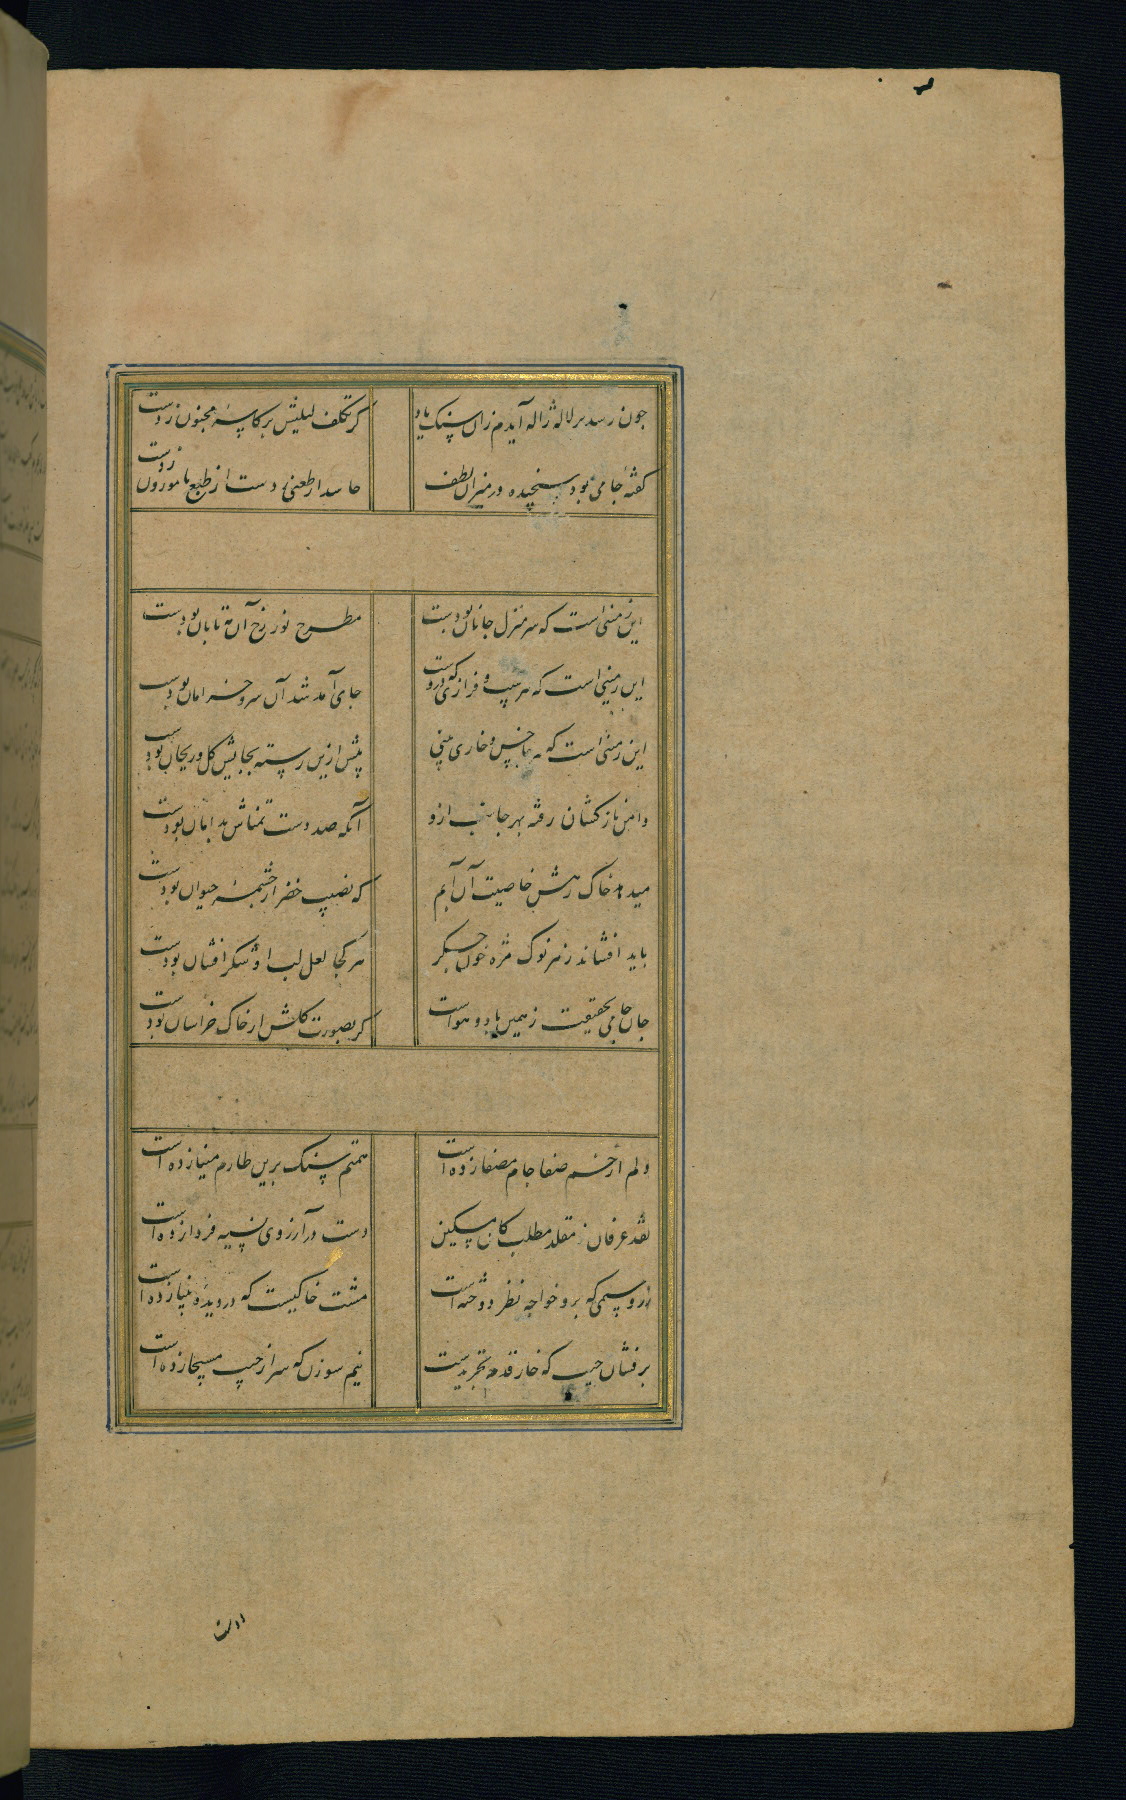 چون رسد بر لاله ژاله آیدم زان سنک یاد
کز تکلف لیلیش بر کاسهٔ مجنون زدست
کفتهٔ جامی بود سنجیده در میزان لطف
حاسد ار طعنی زدست از طبع ناموزون زدست
این زمینی است که سرمنزل جانان بودست
مطرح نور رخ آن مه تابان بودست
این زمینی است که هر شیب و فرازی که دروست
جای آمد شد آن سرو خرامان بودست
این زمینی است که هر جا خس و خاری بینی
پیش ازین رسته بجایش کل و ریحان بودست
دامن ناز کشان رفته بهر جانب ازو
آنکه صد دست تمناش بدامان بودست
میدهد خاک رهش خاصیت آن آبم
که نصیب خضر از چشمهٔ حیوان بودست
باید افشاند ز هر نوک مژه خون جکر
هر کجا لعل لب او شکر افشان بودست
جان جامی بحقیقت ز همین باد و هواست
کر بصورت کلش از خاک خراسان بودست
دلم از خم صفا جام مصفا زده است
همتم سنک برین طارم مینا زده است
نقد عرفان ز مقلد مطلب کان مسکین
دست در آرزوی نسیهٔ فردا زده است
زر و سیمی که برو خواجه نظر دوخته است
مشت خاکیست که در دیدهٔ بینا زده است
برفشان جیب که خار قدم تجریدست
نیم سوزن که سر از جیب مسیحا زده است